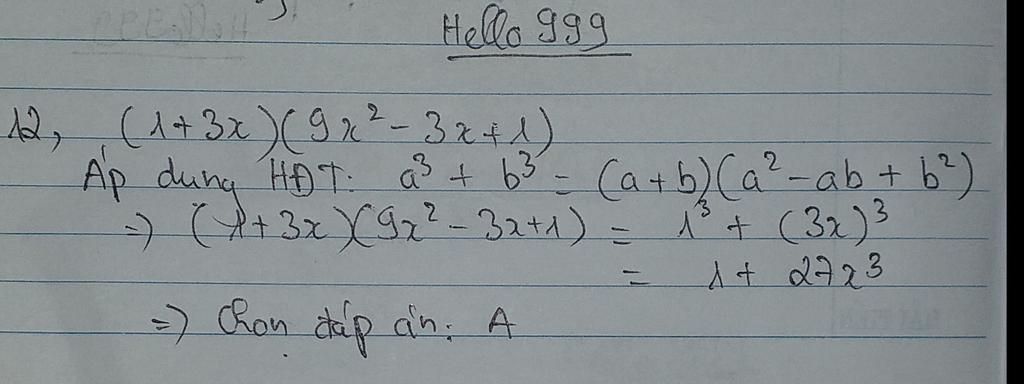 Hello 999
12, (1+3x)(9x² - 3x + 1)
Áp dụng HĐT: a³ + b³ = (a+b)(a² - ab + b²)
=> (1+3x)(9x² - 3x+1) = 1³ + (3x)³
= 1 + 27x³
=> Chọn đáp án: A